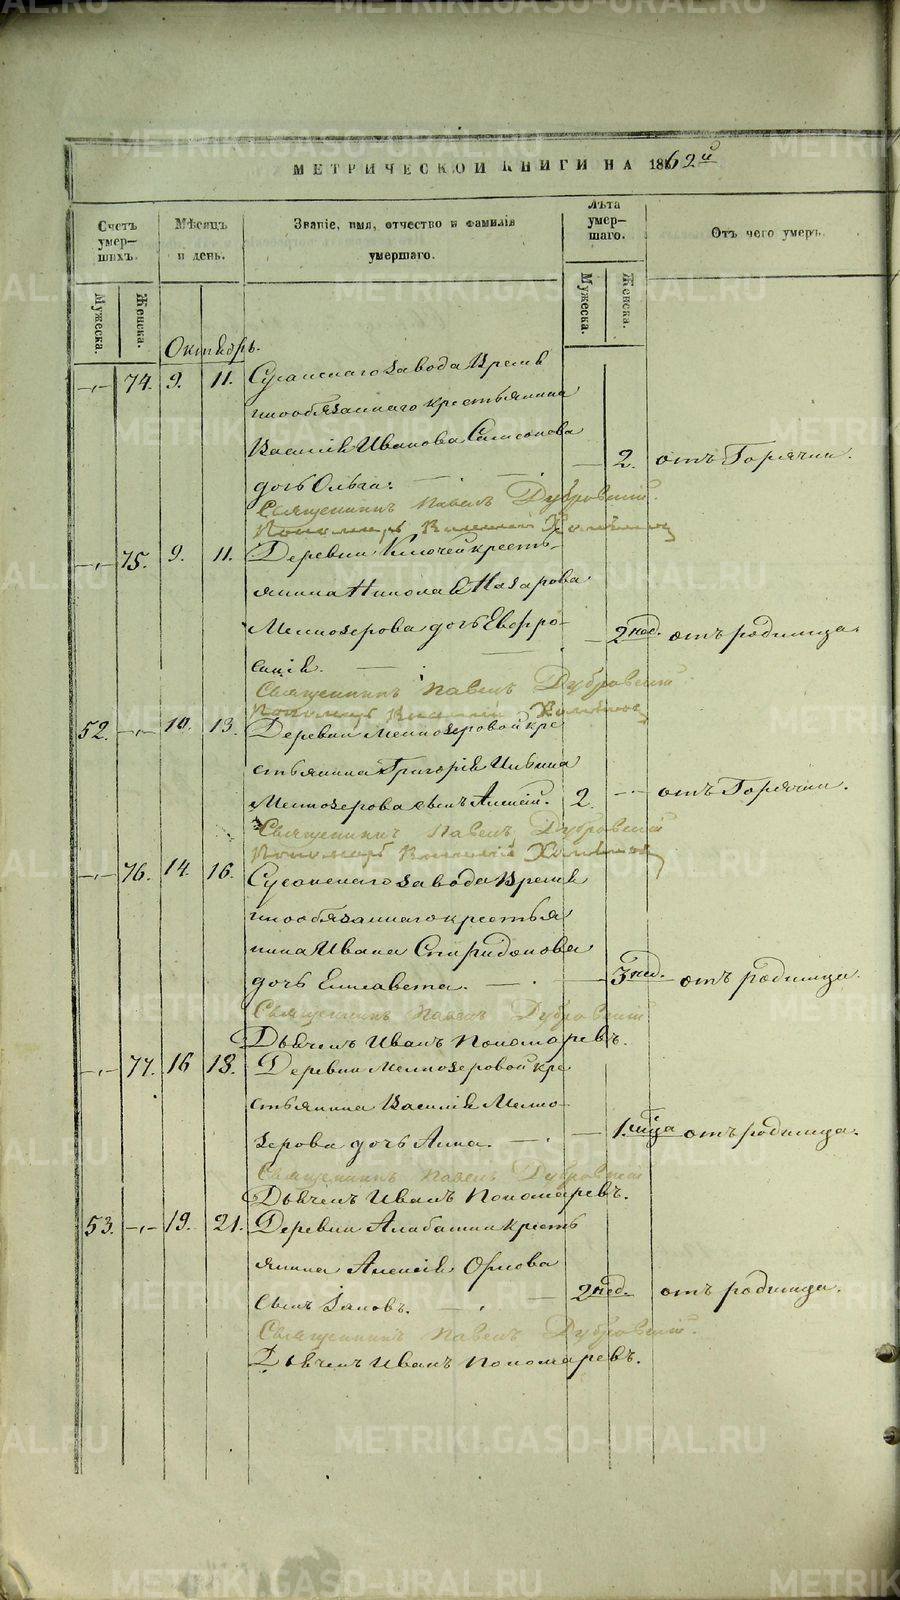 МЕТРИЧЕСКОЙ КНИГИ НА 1862й
Счетъ умер-шихъ.
Мѣсяцъ и день.
Званіе, имя, отчество и фамилія умершаго.
Лѣта умер-шаго.
Отъ чего умеръ.
Мужеска. Женска. Мужеска. Женска.
Октябрь.
-,- 74. 9. 11. Сусанскаго завода Времѣ
ннообязаннаго крестьянина
Василія Иванова Самсонова
2. отъ Горячки.
дочь Ольга.
Священникъ Павелъ Дубровскій.
Пономарь
-,- 75. 9. 11. Деревни Ключей кресть-
янина Николая Назарова
Мелкозерова дочь Евфро-
2 нед. отъ родимца.
синія.
Священникъ Павелъ Дубровскій
Пономарь
52. -,- 10. 13. Деревни Мелкозеровой кре
стьянина Григорія Ильина
Мелкозерова сынъ Алексій. 2. отъ Горячки.
Священникъ Павелъ Дубровскій
Пономарь
-,- 76. 14. 16. Сусанскаго завода Времѣ
ннообязаннаго крестья
нина Ивана Спиридонова
дочь Елисавета. 3 нед. отъ родимца.
Священникъ Павелъ Дубровскій
Дьячекъ Иванъ Пономаревъ.
-,- 77. 16 18. Деревни Мелкозеровой кре
стьянина Василія Мелко-
зерова дочь Анна. 1. отъ родимца.
Священникъ Павелъ Дубровскій
Дьячекъ Иванъ Пономаревъ.
53. -,- 19. 21. Деревни Алабашки кресть
янина Алексія Орлова
сынъ Іаковъ. 2 нед. отъ родимца.
Священникъ Павелъ Дубровскій.
Дьячекъ Иванъ Пономаревъ.
METRIKI.GASO-URAL.RU